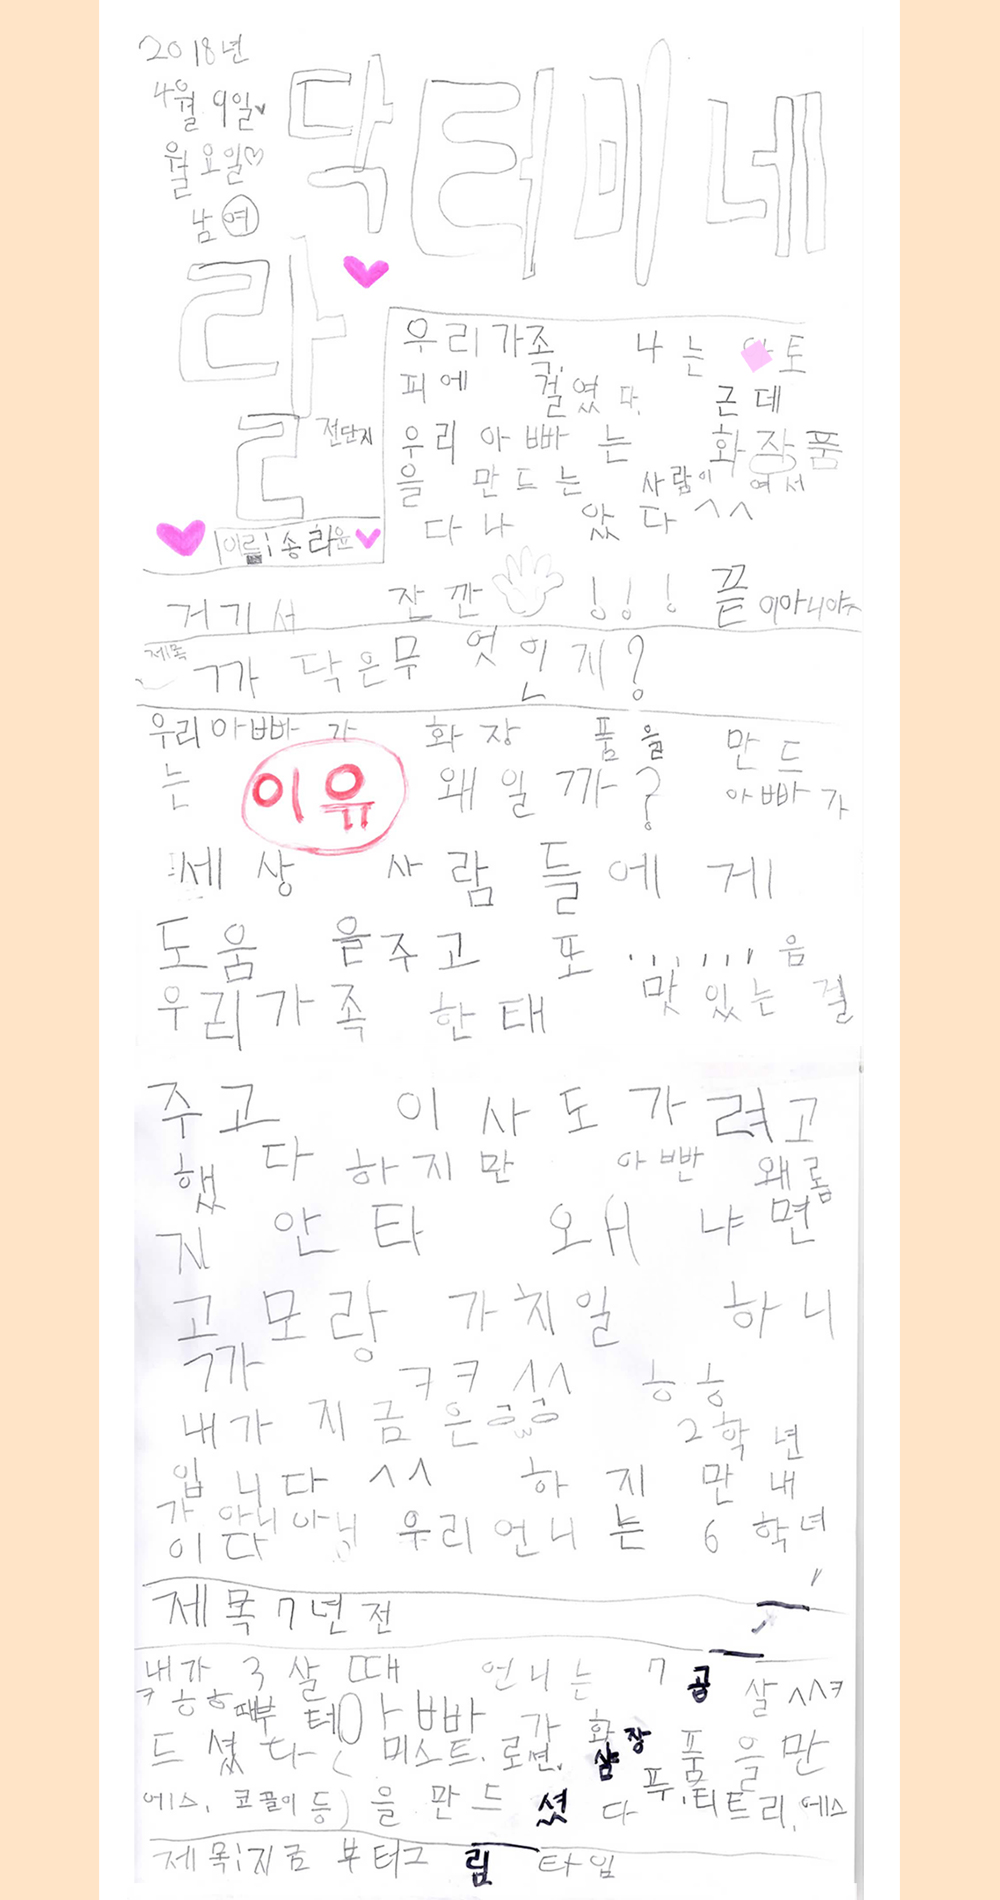 2018년
4월 9일
월요일♡
남 여
닥터미네
랄
전단지
이름 : 송하윤
우리가족, 나는 아토
피에 걸렸다. 근데
우리 아빠는 화장품
을 만드는 사람이여서
다 나았다 ^^
거기서 잠깐 !!! 끝이아니야
제목
ㄱ가 닥은무엇인지?
우리아빠가 화장품을 만드
는 이유 왜일까? 아빠가
세상 사람들에게
도움을주고 또 ...... 음
우리가족한태 맛있는 걸
주고 이사도가려고
했다 하지만 아빤 왜롭
지 안타 왜냐면
고모랑 가치일 하니
ㄱ가 ㅋㅋ ^^ ㅎㅎ
내가 지금은 2학년
입니다 ^^ 하지만 내
가 아니아니 우리언니는 6학녀
이다
제목 7년전
내가 3살때 언니는 7 곱 살 ^^ㅋ
ㅋㅎㅎ 때부터 아빠가 화장품을 만
드셨다 미스트, 로션, 샴푸, 티트리, 에스
에스, 코끌이 등) 을 만드셨다
제목:지금부터그림타임